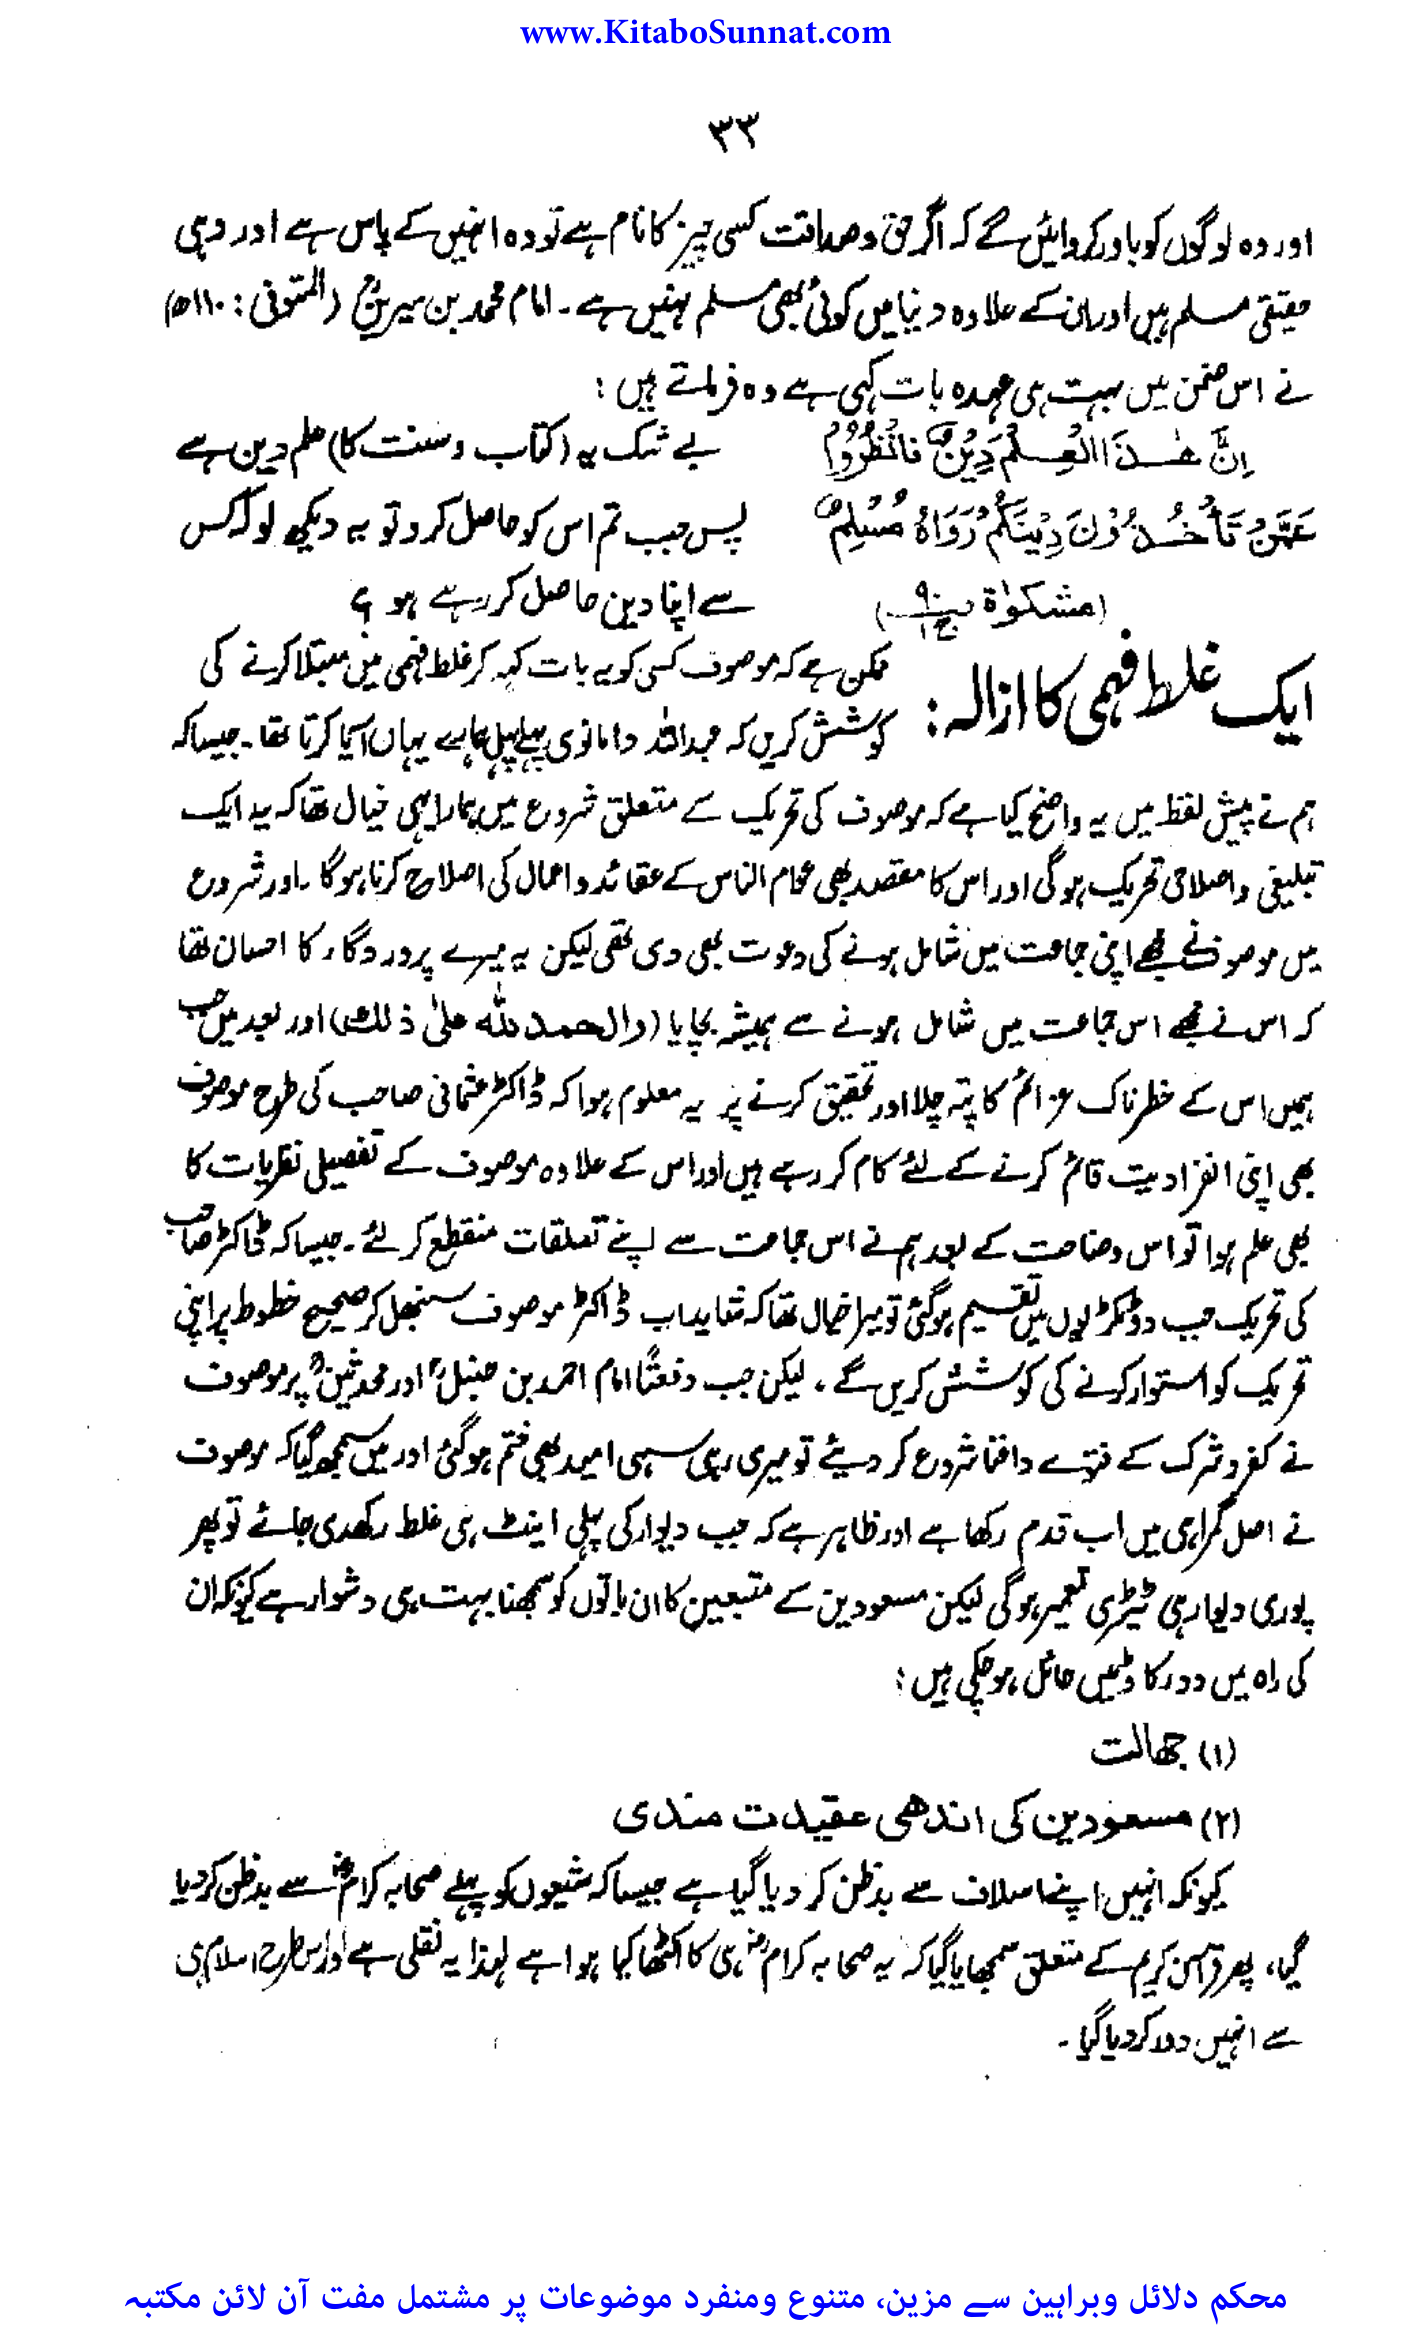 www.KitaboSunnat.com
٣٣
اور وہ لوگوں کو باور کروائیں گے کہ اگر حق و صداقت کسی چیز کا نام ہے تو وہ انہیں کے پاس ہے اور وہی
حقیقی مسلم ہیں اور ان کے علاوہ دنیا میں کوئی بھی مسلم نہیں ہے۔ امام محمد بن سیرینؒ (المتوفی: ۱۱۰ھ)
نے اس ضمن میں بہت ہی عمدہ بات کہی ہے وہ فرماتے ہیں:
اِنَّ هٰذَا الْعِلْمَ دِيْنٌ فَانْظُرُوْا بے شک یہ (کتاب و سنت کا) علم دین ہے
عَمَّنْ تَأْخُذُوْنَ دِيْنَكُمْ رَوَاهُ مُسْلِمٌ پس جب تم اس کو حاصل کرو تو یہ دیکھ لو کہ کس
(مشکوٰۃ ص۹۰ ج۱) سے اپنا دین حاصل کر رہے ہو؟
ایک غلط فہمی کا ازالہ: ممکن ہے کہ موصوف کسی کو یہ بات کہہ کر غلط فہمی میں مبتلا کرنے کی
کوشش کریں کہ عبداللہ دامانوی پہلے پہل ہمارے یہاں آیا کرتا تھا۔ جیسا کہ
ہم نے پیش لفظ میں یہ واضح کیا ہے کہ موصوف کی تحریک کے متعلق شروع میں ہمارا یہی خیال تھا کہ یہ ایک
تبلیغی و اصلاحی تحریک ہوگی اور اس کا مقصد بھی عوام الناس کے عقائد و اعمال کی اصلاح کرنا ہوگا۔ اور شروع
میں موصوف نے مجھے اپنی جماعت میں شامل ہونے کی دعوت بھی دی تھی لیکن یہ میرے پروردگار کا احسان تھا
کہ اس نے مجھے اس جماعت میں شامل ہونے سے ہمیشہ بچایا (والحمد للہ علیٰ ذلک) اور بعد میں جب
ہمیں اس کے خطرناک عزائم کا پتہ چلا اور تحقیق کرنے پر یہ معلوم ہوا کہ ڈاکٹر عثمانی صاحب کی طرح موصوف
بھی اپنی انفرادیت قائم کرنے کے لئے کام کر رہے ہیں اور اس کے علاوہ موصوف کے تفصیلی نظریات کا
بھی علم ہوا تو اس وضاحت کے بعد ہم نے اس جماعت سے اپنے تعلقات منقطع کر لئے۔ جیسا کہ ڈاکٹر صاحب
کی تحریک جب دو ٹکڑیوں میں تقسیم ہوگئی تو میرا خیال تھا کہ شاید اب ڈاکٹر موصوف سنبھل کر صحیح خطوط پر اپنی
تحریک کو استوار کرنے کی کوشش کریں گے۔ لیکن جب دفعتًا امام احمد بن حنبلؒ اور محدثینؒ پر موصوف
نے کفر و شرک کے فتوے داغنا شروع کر دیئے تو میری رہی سہی امید بھی ختم ہوگئی اور میں سمجھ گیا کہ موصوف
نے اصل گمراہی میں اب قدم رکھا ہے اور ظاہر ہے کہ جب دیوار کی پہلی اینٹ ہی غلط رکھدی جائے تو پھر
پوری دیوار ہی ٹیڑی تعمیر ہوگی لیکن مسعودین کے متبعین کا ان باتوں کو سمجھنا بہت ہی دشوار ہے کیونکہ ان
کی راہ میں دو رکاوٹیں حائل ہو چکی ہیں:
(۱) جهالت
(۲) مسعودین کی اندھی عقیدت مندی
کیونکہ انہیں اپنے اسلاف سے بدظن کر دیا گیا ہے جیسا کہ شیعوں کو پہلے صحابہ کرامؓ سے بدظن کر دیا
گیا، پھر قرآن کریم کے متعلق سمجھایا گیا کہ یہ صحابہ کرامؓ ہی کا اکٹھا کیا ہوا ہے لہذا یہ نقلی ہے اور اس طرح اسلام ہی
سے انہیں دور کر دیا گیا۔
محکم دلائل وبراہین سے مزین، متنوع ومنفرد موضوعات پر مشتمل مفت آن لائن مکتبہ